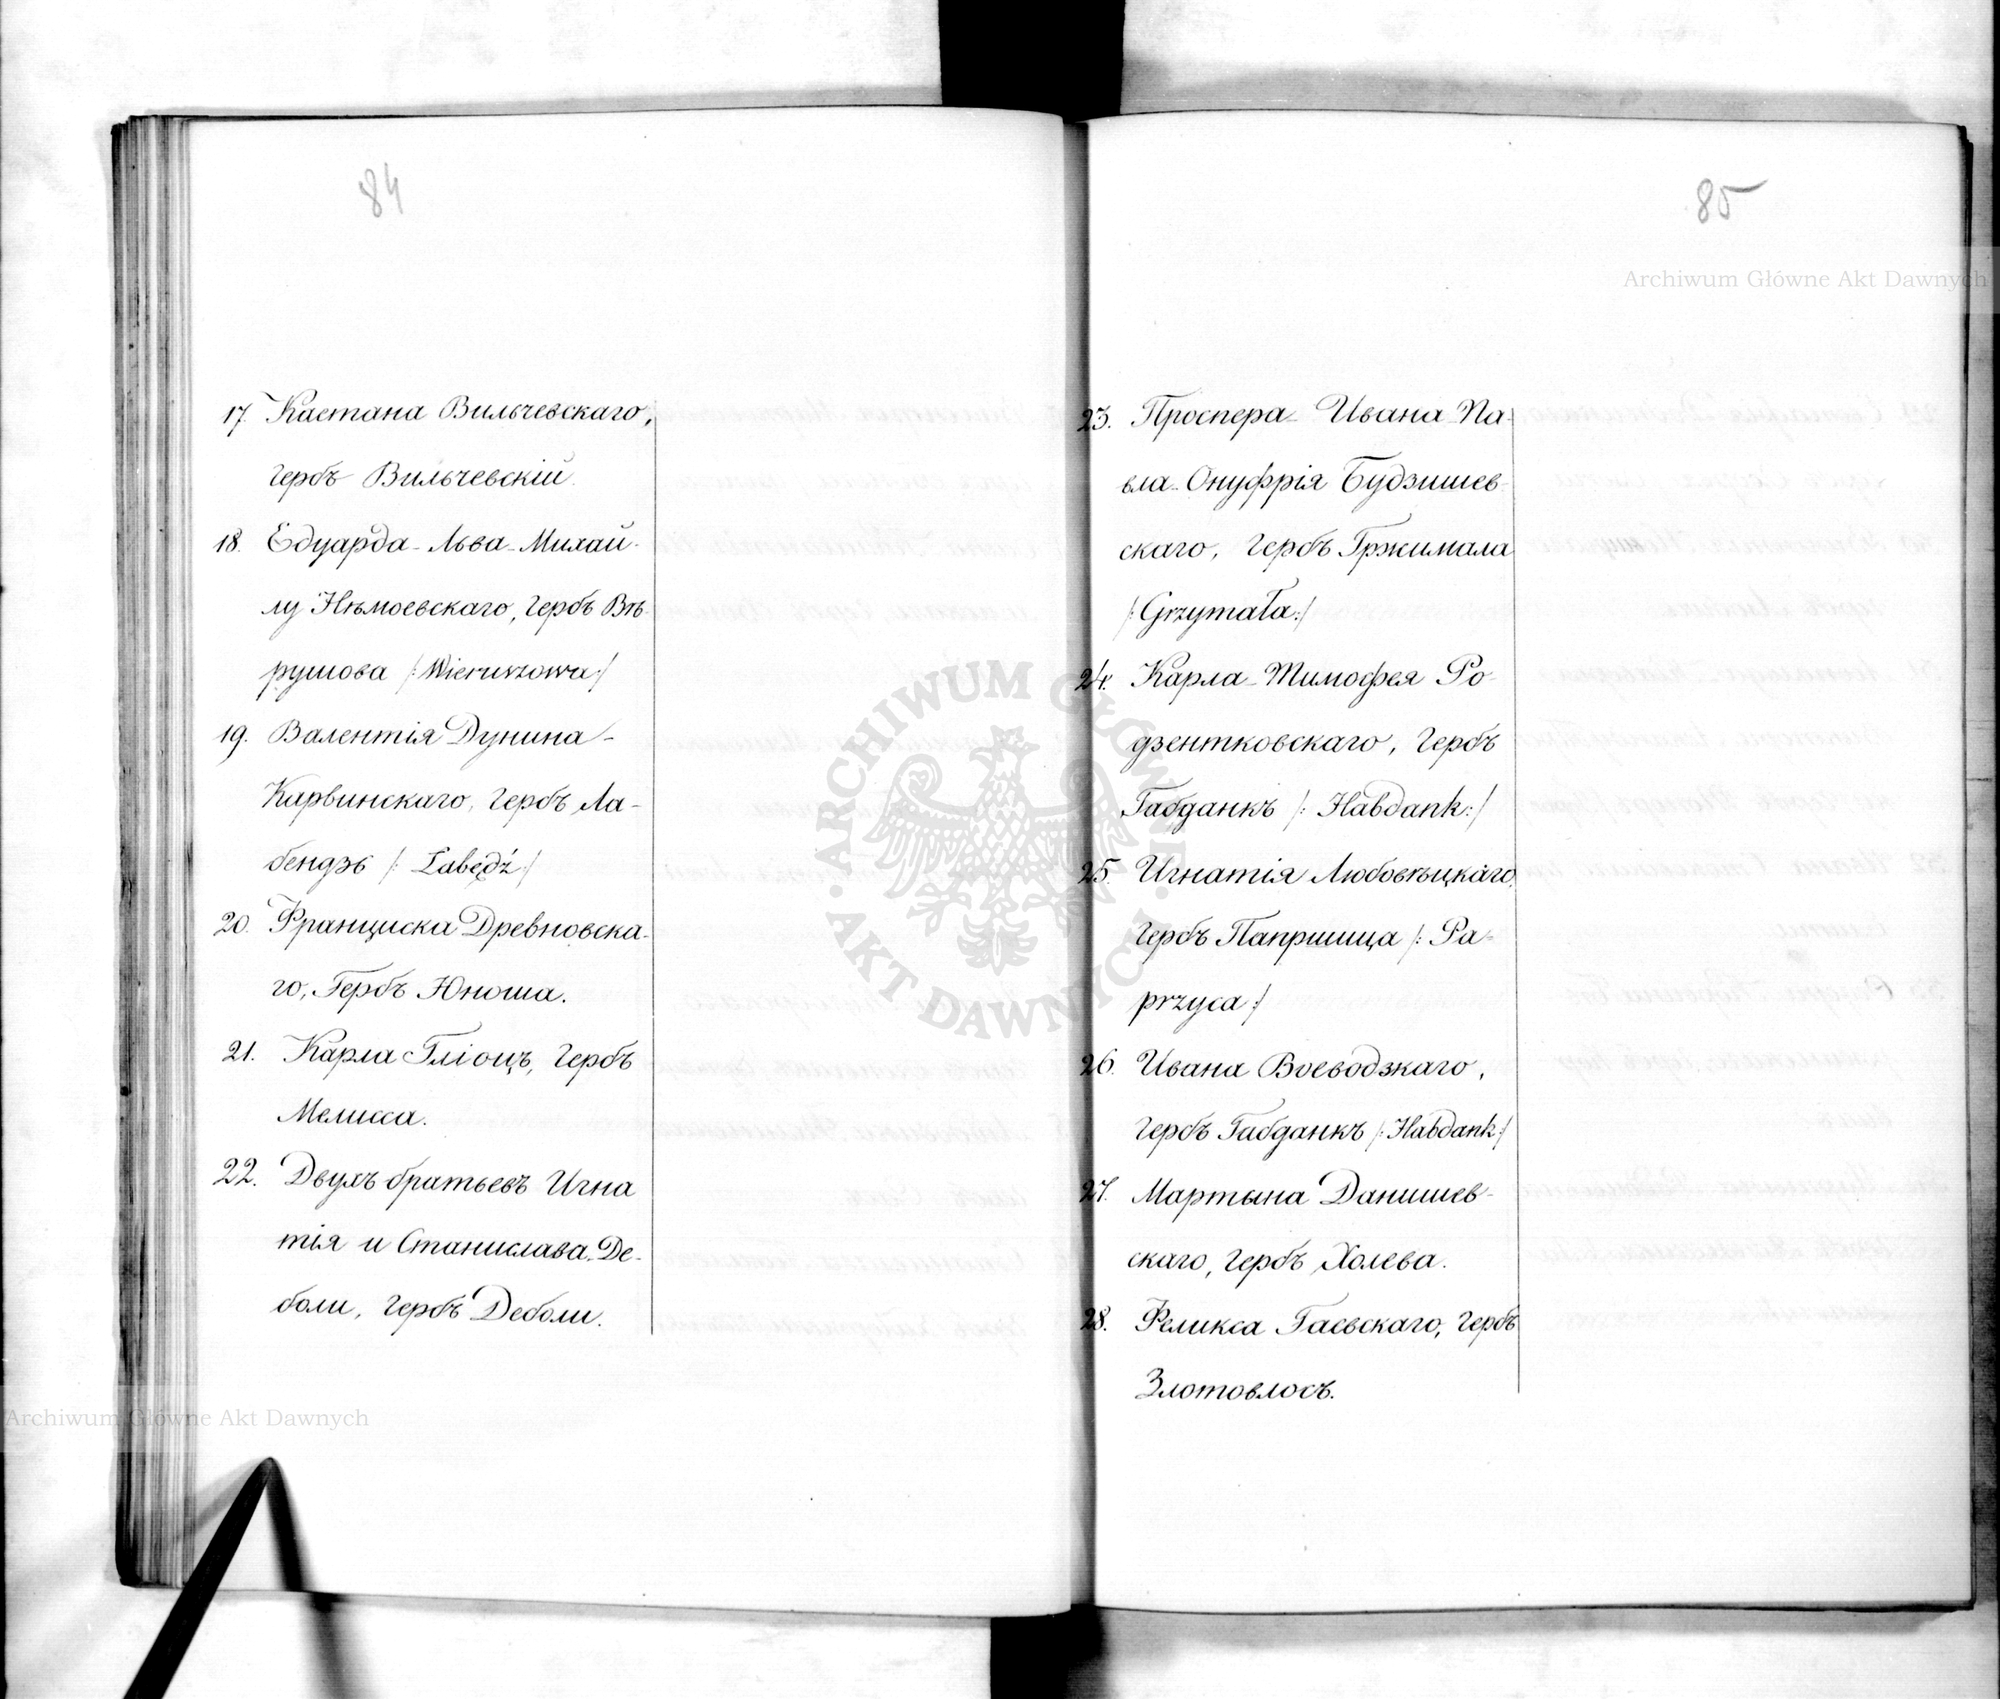 84
17. Каетана Вильчевскаго,
гербъ Вильчевскій.
18. Едуарда-Льва-Михаи-
лу Нѣмоевскаго, гербъ Вѣ-
рушова /: Wieruszowa :/
19. Валентія Дунина-
Карвинскаго, гербъ Ла-
бендзь /: Łabędź :/
20. Франциска Древновска-
го, Гербъ Юноша.
21. Карла Гліоцъ, гербъ
Мелисса.
22. Двухъ братьевъ Игна
тія и Станислава Де-
боли, гербъ Деболи.
85
23. Проспера- Ивана-Па-
вла-Онуфрія Будзишев-
скаго, гербъ Гржимала
/: Grzymała :/
24. Карла-Тимофея Ро-
дзентковскаго, гербъ
Габданкъ /: Habdank :/
25. Игнатія Любовѣцкаго,
гербъ Папршица /: Pa-
przyca :/
26. Ивана Воеводзкаго,
гербъ Габданкъ /: Habdank :/
27. Мартына Данишев-
скаго, гербъ Холева.
28. Феликса Гаевскаго, гербъ
Злотовлосъ.
Archiwum Główne Akt Dawnych
ARCHIWUM GŁÓWNE · AKT DAWNYCH ·
Archiwum Główne Akt Dawnych